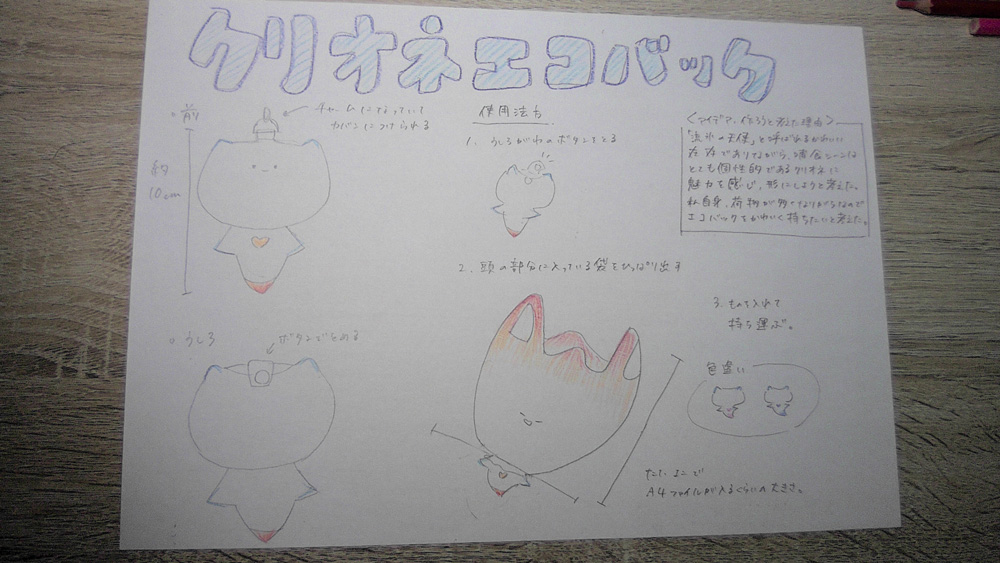 クリオネエコバック
○前
チャームになっていて
カバンにつけられる
約
10cm
使用法方
1. うしろがわのボタンをとる
<アイデア、作ろうと考えた理由>
「流氷の天使」と呼ばれるかわいい
存在でありながら、捕食シーンは
とても個性的であるクリオネに
魅力を感じ、形にしようと考えた。
私自身、荷物が多くなりがちなので
エコバックをかわいく持ちたいと考えた。
2. 頭の部分に入っている袋をひっぱり出す
3. ものを入れて
持ち運ぶ。
○うしろ
ボタンでとめる
色違い
たて、よこで
A4ファイルが入るくらいの大きさ。